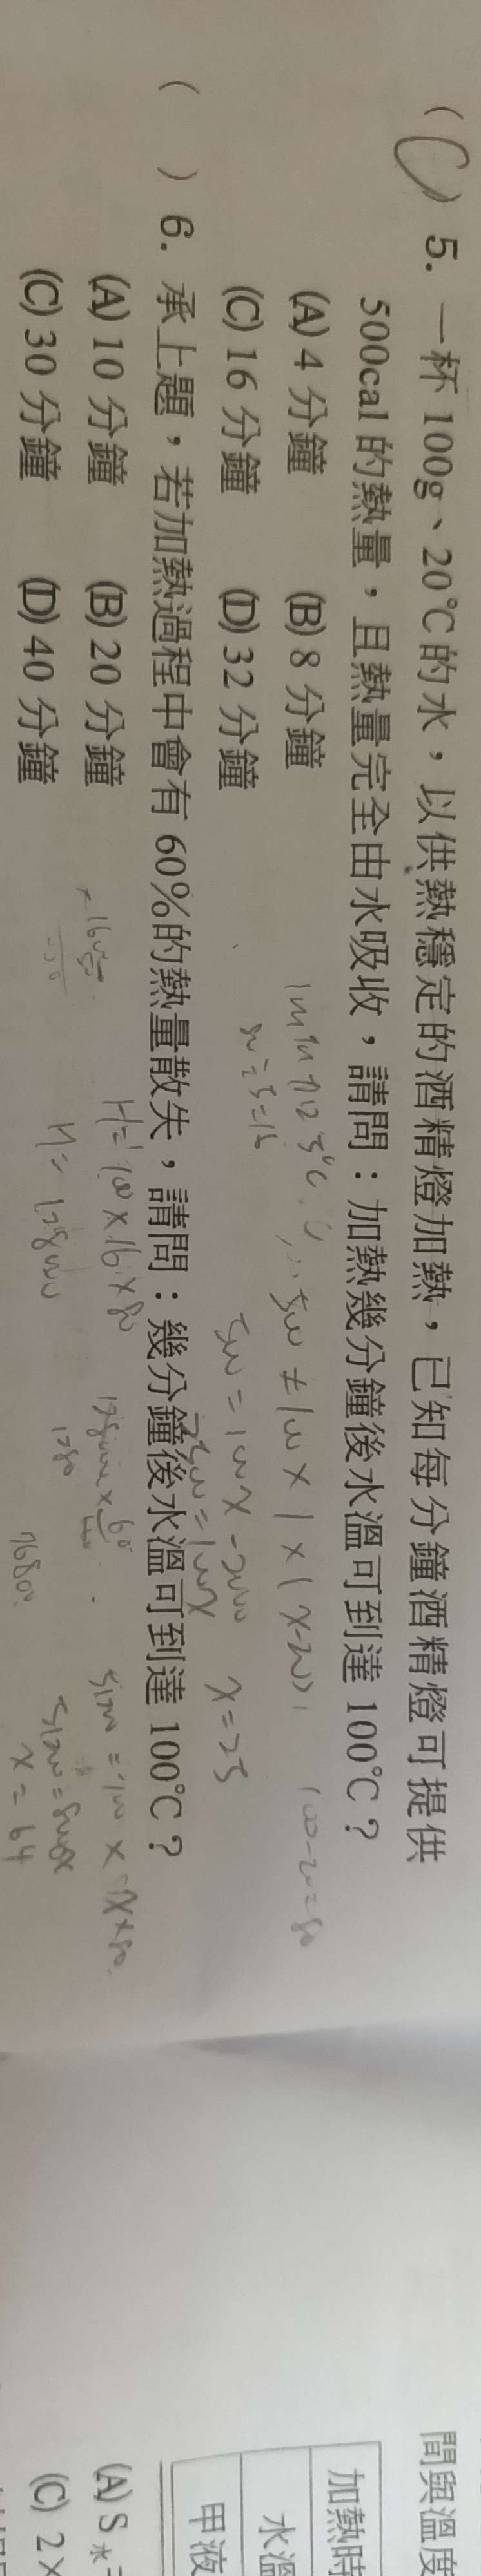 (C) 5. 一杯 100g、20℃的水，以供熱穩定的酒精燈加熱，已知每分鐘酒精燈可提供
500cal 的熱量，且熱量完全由水吸收，請問：加熱幾分鐘後水溫可到達 100℃？
(A) 4 分鐘 (B) 8 分鐘
(C) 16 分鐘 (D) 32 分鐘
1min 加
100-20=80
80÷5=16
x=25
( ) 6. 承上題，若加熱過程中會有 60%的熱量散失，請問：幾分鐘後水溫可到達 100℃？
(A) 10 分鐘 (B) 20 分鐘
(C) 30 分鐘 (D) 40 分鐘
H=100×16×80
H=128000
1280
76800
x=64
間與溫度
加熱時
水溫
甲液
(A) S水=
(C) 2×